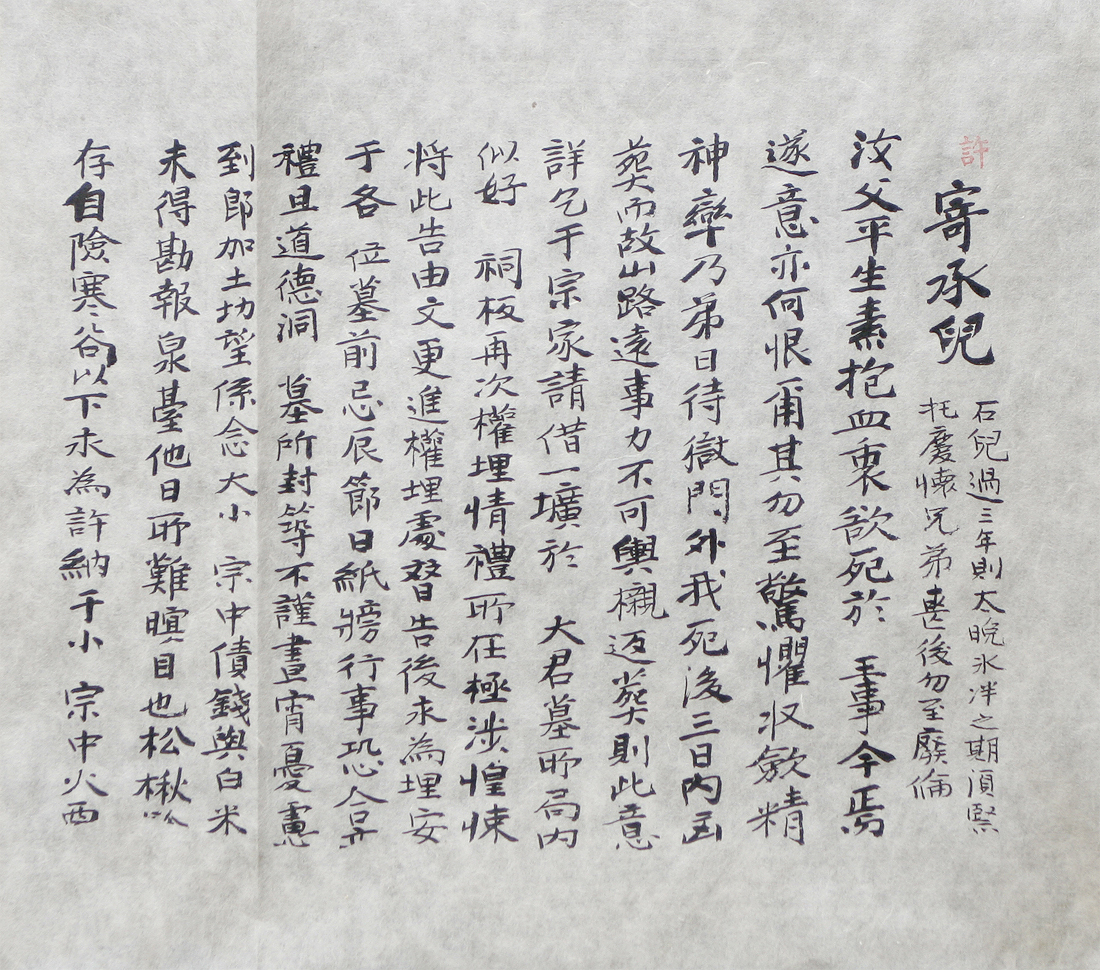 許
寄承兒
石兒過三年則太晩氷泮之期須緊
托慶懷兄弟喪後勿至廢倫
汝父平生素抱血衷欲死於 王事今焉
遂意亦何恨甭其勿至驚懼收斂精
神率乃弟日待獄門外我死後三日內亟
葬而故山路遠事力不可輿櫬返葬則此意
詳乞于宗家請借一壙於 大君墓所局內
似好 祠板再次權埋情禮所在極涉惶悚
將此告由文更進權埋處替告後求為埋安
于各 位墓前忌辰節日紙牓行事恐合
禮且道德洞 墓所封箒不謹晝宵憂慮
到郎加土切望係念大小 宗中債錢與白米
未得勘報泉臺他日所難瞑目也松楸
存自險寒谷以下求為許納于小 宗中火西